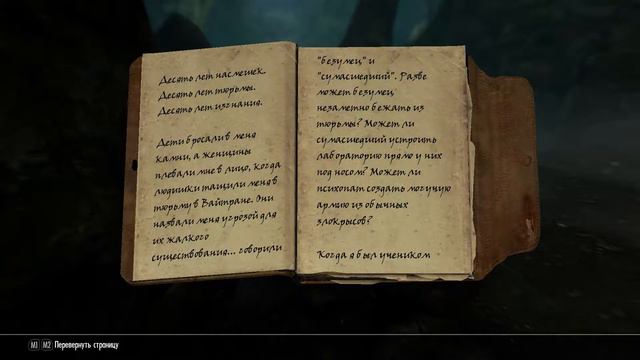 Десять лет насмешек.
Десять лет тюрьмы.
Десять лет изгнания.
Дети бросали в меня
камни, а женщины
плевали мне в лицо, когда
людишки тащили меня в
тюрьму в Вайтране. Они
назвали меня угрозой для
их жалкого
существования... говорили
"безумец" и
"сумасшедший". Разве
может безумец
незаметно бежать из
тюрьмы? Может ли
сумасшедший устроить
лабораторию прямо у них
под носом? Может ли
психопат создать могучую
армию из обычных
злокрысов?
Когда я был учеником
M1 M2 Перевернуть страницу